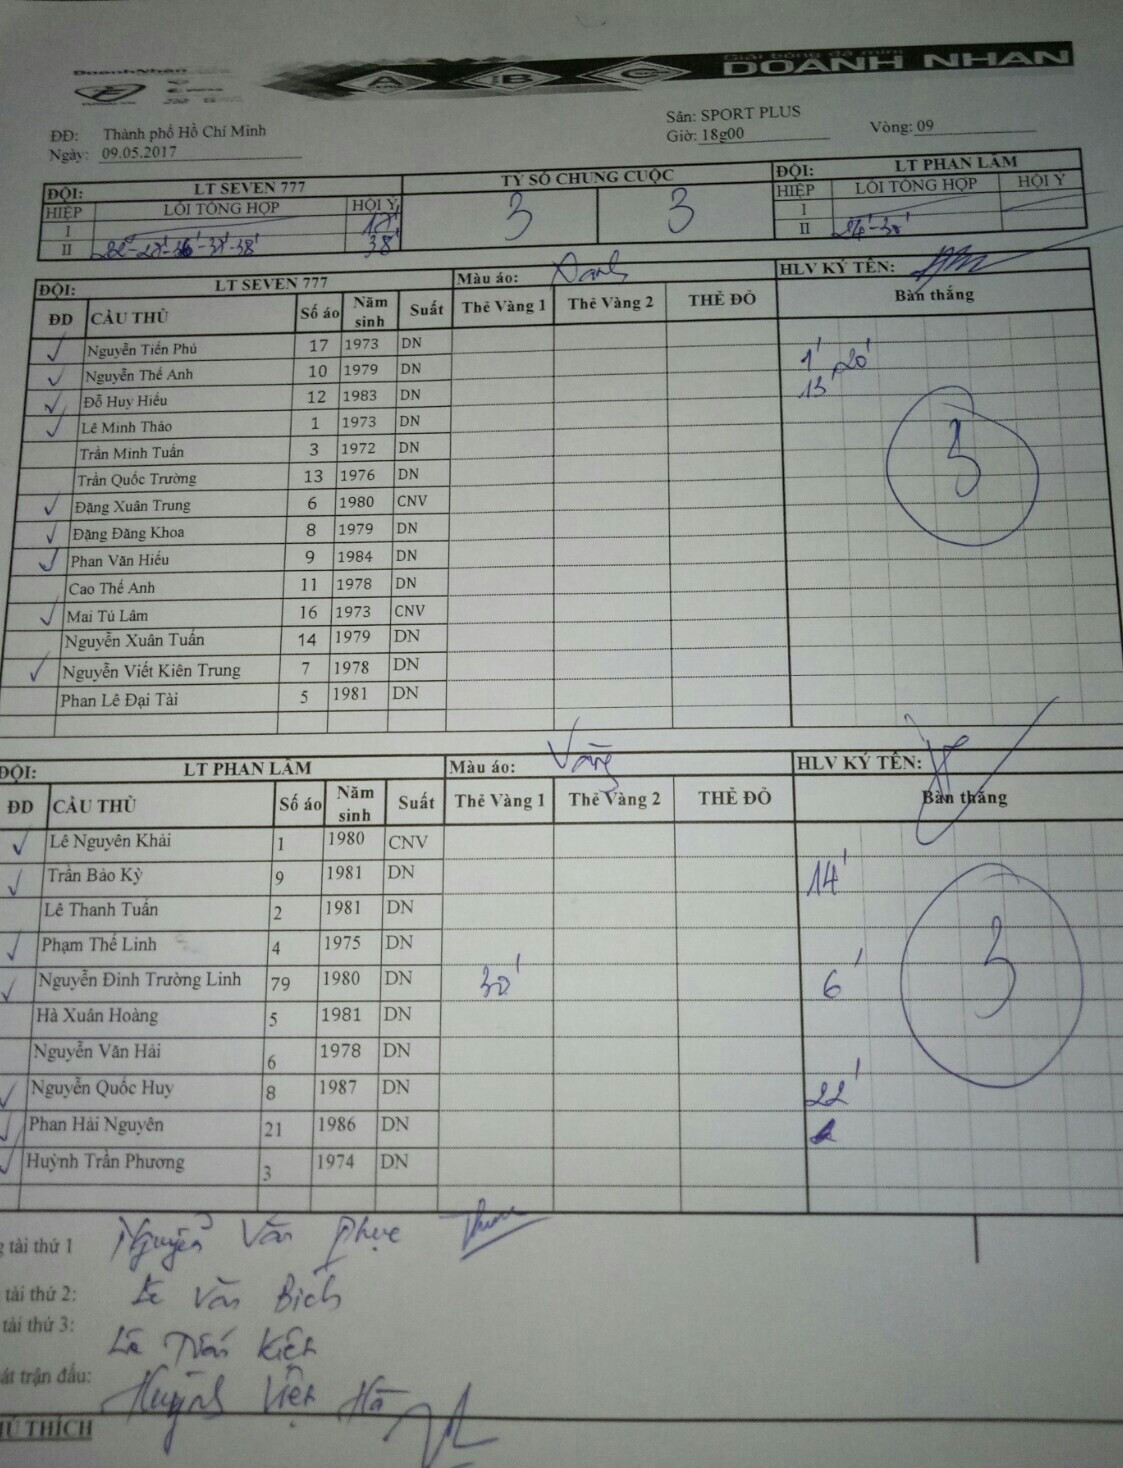 DoanhNhân
A B C Giải bóng đá mini
DOANH NHAN
ĐĐ: Thành phố Hồ Chí Minh Sân: SPORT PLUS
Ngày: 09.05.2017 Giờ: 18g00 Vòng: 09
ĐỘI: LT SEVEN 777 TỶ SỐ CHUNG CUỘC ĐỘI: LT PHAN LÂM
HIỆP LỖI TỔNG HỢP HỘI Ý 3 3 HIỆP LỖI TỔNG HỢP HỘI Ý
I 17' I
II 38' II
ĐỘI: LT SEVEN 777 Màu áo: Xanh HLV KÝ TÊN:
ĐD CẦU THỦ Số áo Năm sinh Suất Thẻ Vàng 1 Thẻ Vàng 2 THẺ ĐỎ Bàn thắng
✓ Nguyễn Tiến Phú 17 1973 DN
✓ Nguyễn Thế Anh 10 1979 DN 1' 20'
✓ Đỗ Huy Hiếu 12 1983 DN 13'
✓ Lê Minh Thảo 1 1973 DN
Trần Minh Tuấn 3 1972 DN 3
Trần Quốc Trường 13 1976 DN
✓ Đặng Xuân Trung 6 1980 CNV
✓ Đặng Đăng Khoa 8 1979 DN
✓ Phan Văn Hiếu 9 1984 DN
Cao Thế Anh 11 1978 DN
✓ Mai Tú Lâm 16 1973 CNV
Nguyễn Xuân Tuấn 14 1979 DN
✓ Nguyễn Viết Kiên Trung 7 1978 DN
Phan Lê Đại Tài 5 1981 DN
ĐỘI: LT PHAN LÂM Màu áo: Vàng HLV KÝ TÊN:
ĐD CẦU THỦ Số áo Năm sinh Suất Thẻ Vàng 1 Thẻ Vàng 2 THẺ ĐỎ Bàn thắng
✓ Lê Nguyên Khải 1 1980 CNV
✓ Trần Bảo Kỳ 9 1981 DN 14'
Lê Thanh Tuấn 2 1981 DN
✓ Phạm Thế Linh 4 1975 DN 3
✓ Nguyễn Đình Trường Linh 79 1980 DN 30' 6'
Hà Xuân Hoàng 5 1981 DN
Nguyễn Văn Hải 6 1978 DN
✓ Nguyễn Quốc Huy 8 1987 DN 22'
✓ Phan Hải Nguyên 21 1986 DN
✓ Huỳnh Trần Phương 3 1974 DN
tài thứ 1 Nguyễn Văn Phục
tài thứ 2: Lê Văn Bích
tài thứ 3: Kiệt
át trận đấu: Huỳnh Việt Hà
Ú THÍCH